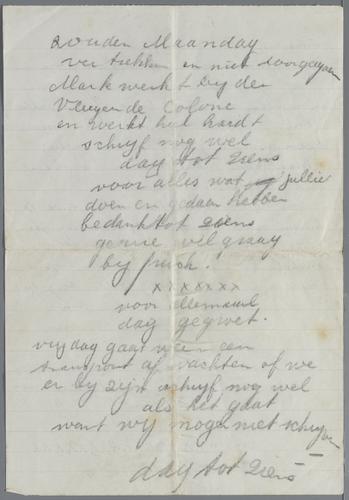 zouden Maandag
vertrekken en niet doorgegaan
Mark werkt bij den
Vliegende Colone
en werkt heel hardt
schrijf nog wel
dag tot ziens
voor alles wat jullie
doen en gedaan hebben
bedankt tot ziens
wel graag
bij
xxxxxxx
voor allemaal
dag gegroet.
vrijdag gaat weer een
transport af wachten of we
er bij zijn schrijf nog wel
als het gaat
want wij mogen niet schrijven
dag tot ziens